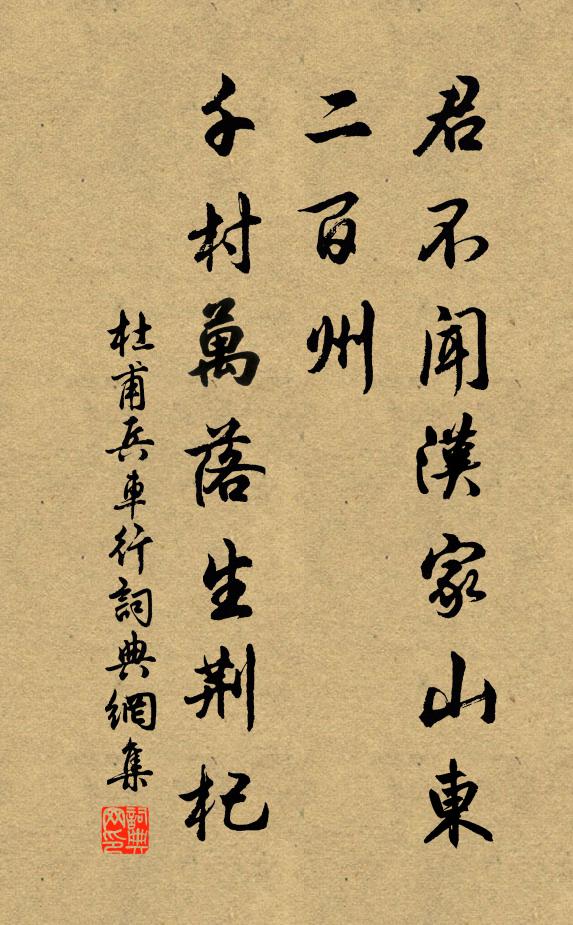 君不聞漢家山東
二百州
千村萬落生荆杞
杜甫兵車行詞典網集
詞典
网印